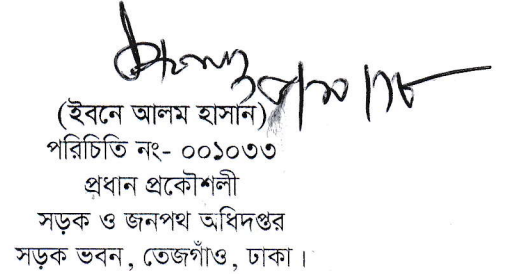 (ইবনে আলম হাসান)
পরিচিতি নং- ০০১০৩৩
প্রধান প্রকৌশলী
সড়ক ও জনপথ অধিদপ্তর
সড়ক ভবন, তেজগাঁও, ঢাকা।